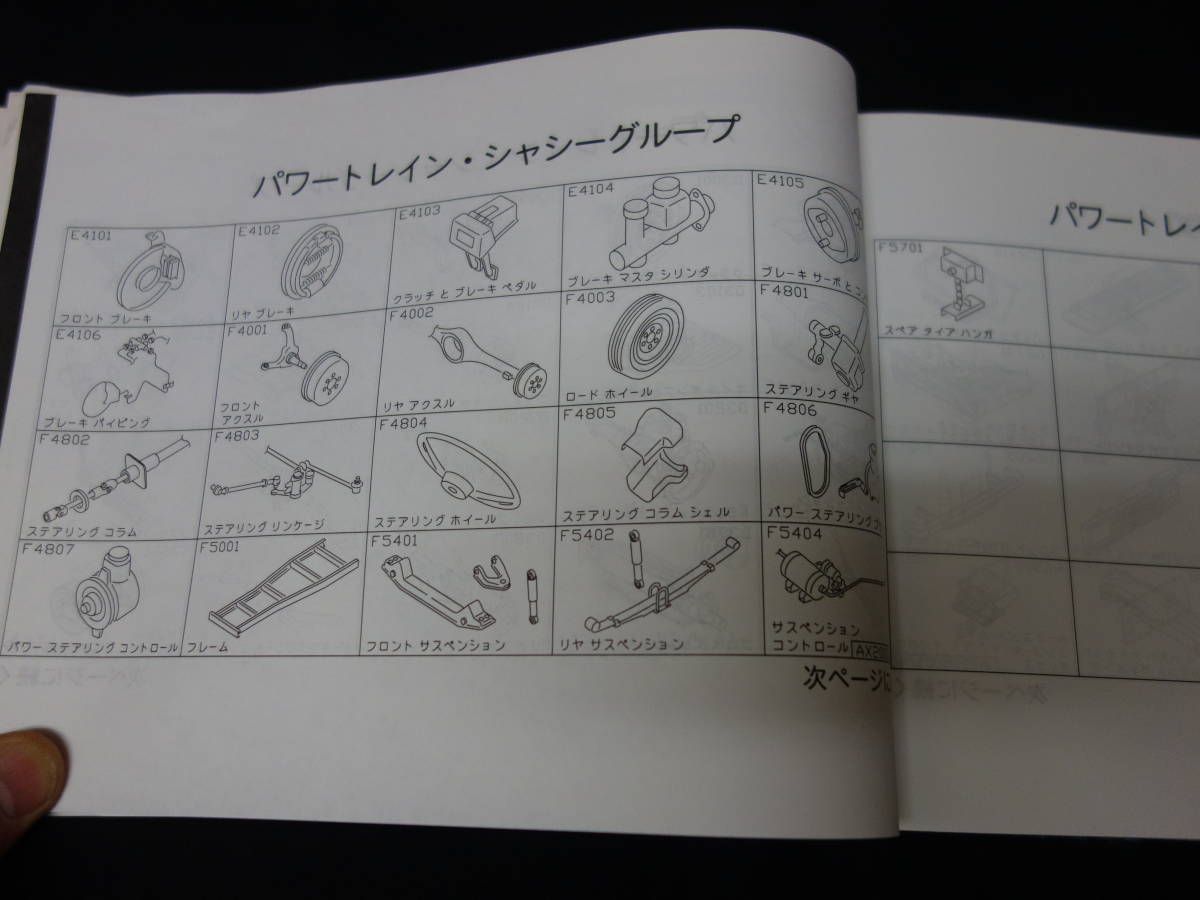 パワートレイン・シャシーグループ
E4101
フロント ブレーキ
E4102
リヤ ブレーキ
E4103
クラッチ と ブレーキ ペダル
E4104
ブレーキ マスタ シリンダ
E4105
ブレーキ サーボ と コン
E4106
ブレーキ パイピング
F4001
フロント
アクスル
F4002
リヤ アクスル
F4003
ロード ホイール
F4801
ステアリング ギヤ
F4802
ステアリング コラム
F4803
ステアリング リンケージ
F4804
ステアリング ホイール
F4805
ステアリング コラム シェル
F4806
パワー ステアリング
F4807
パワー ステアリング コントロール
F5001
フレーム
F5401
フロント サスペンション
F5402
リヤ サスペンション
F5404
サスペンション
コントロール
次ページに
パワートレイ
F5701
スペア タイア ハンガ